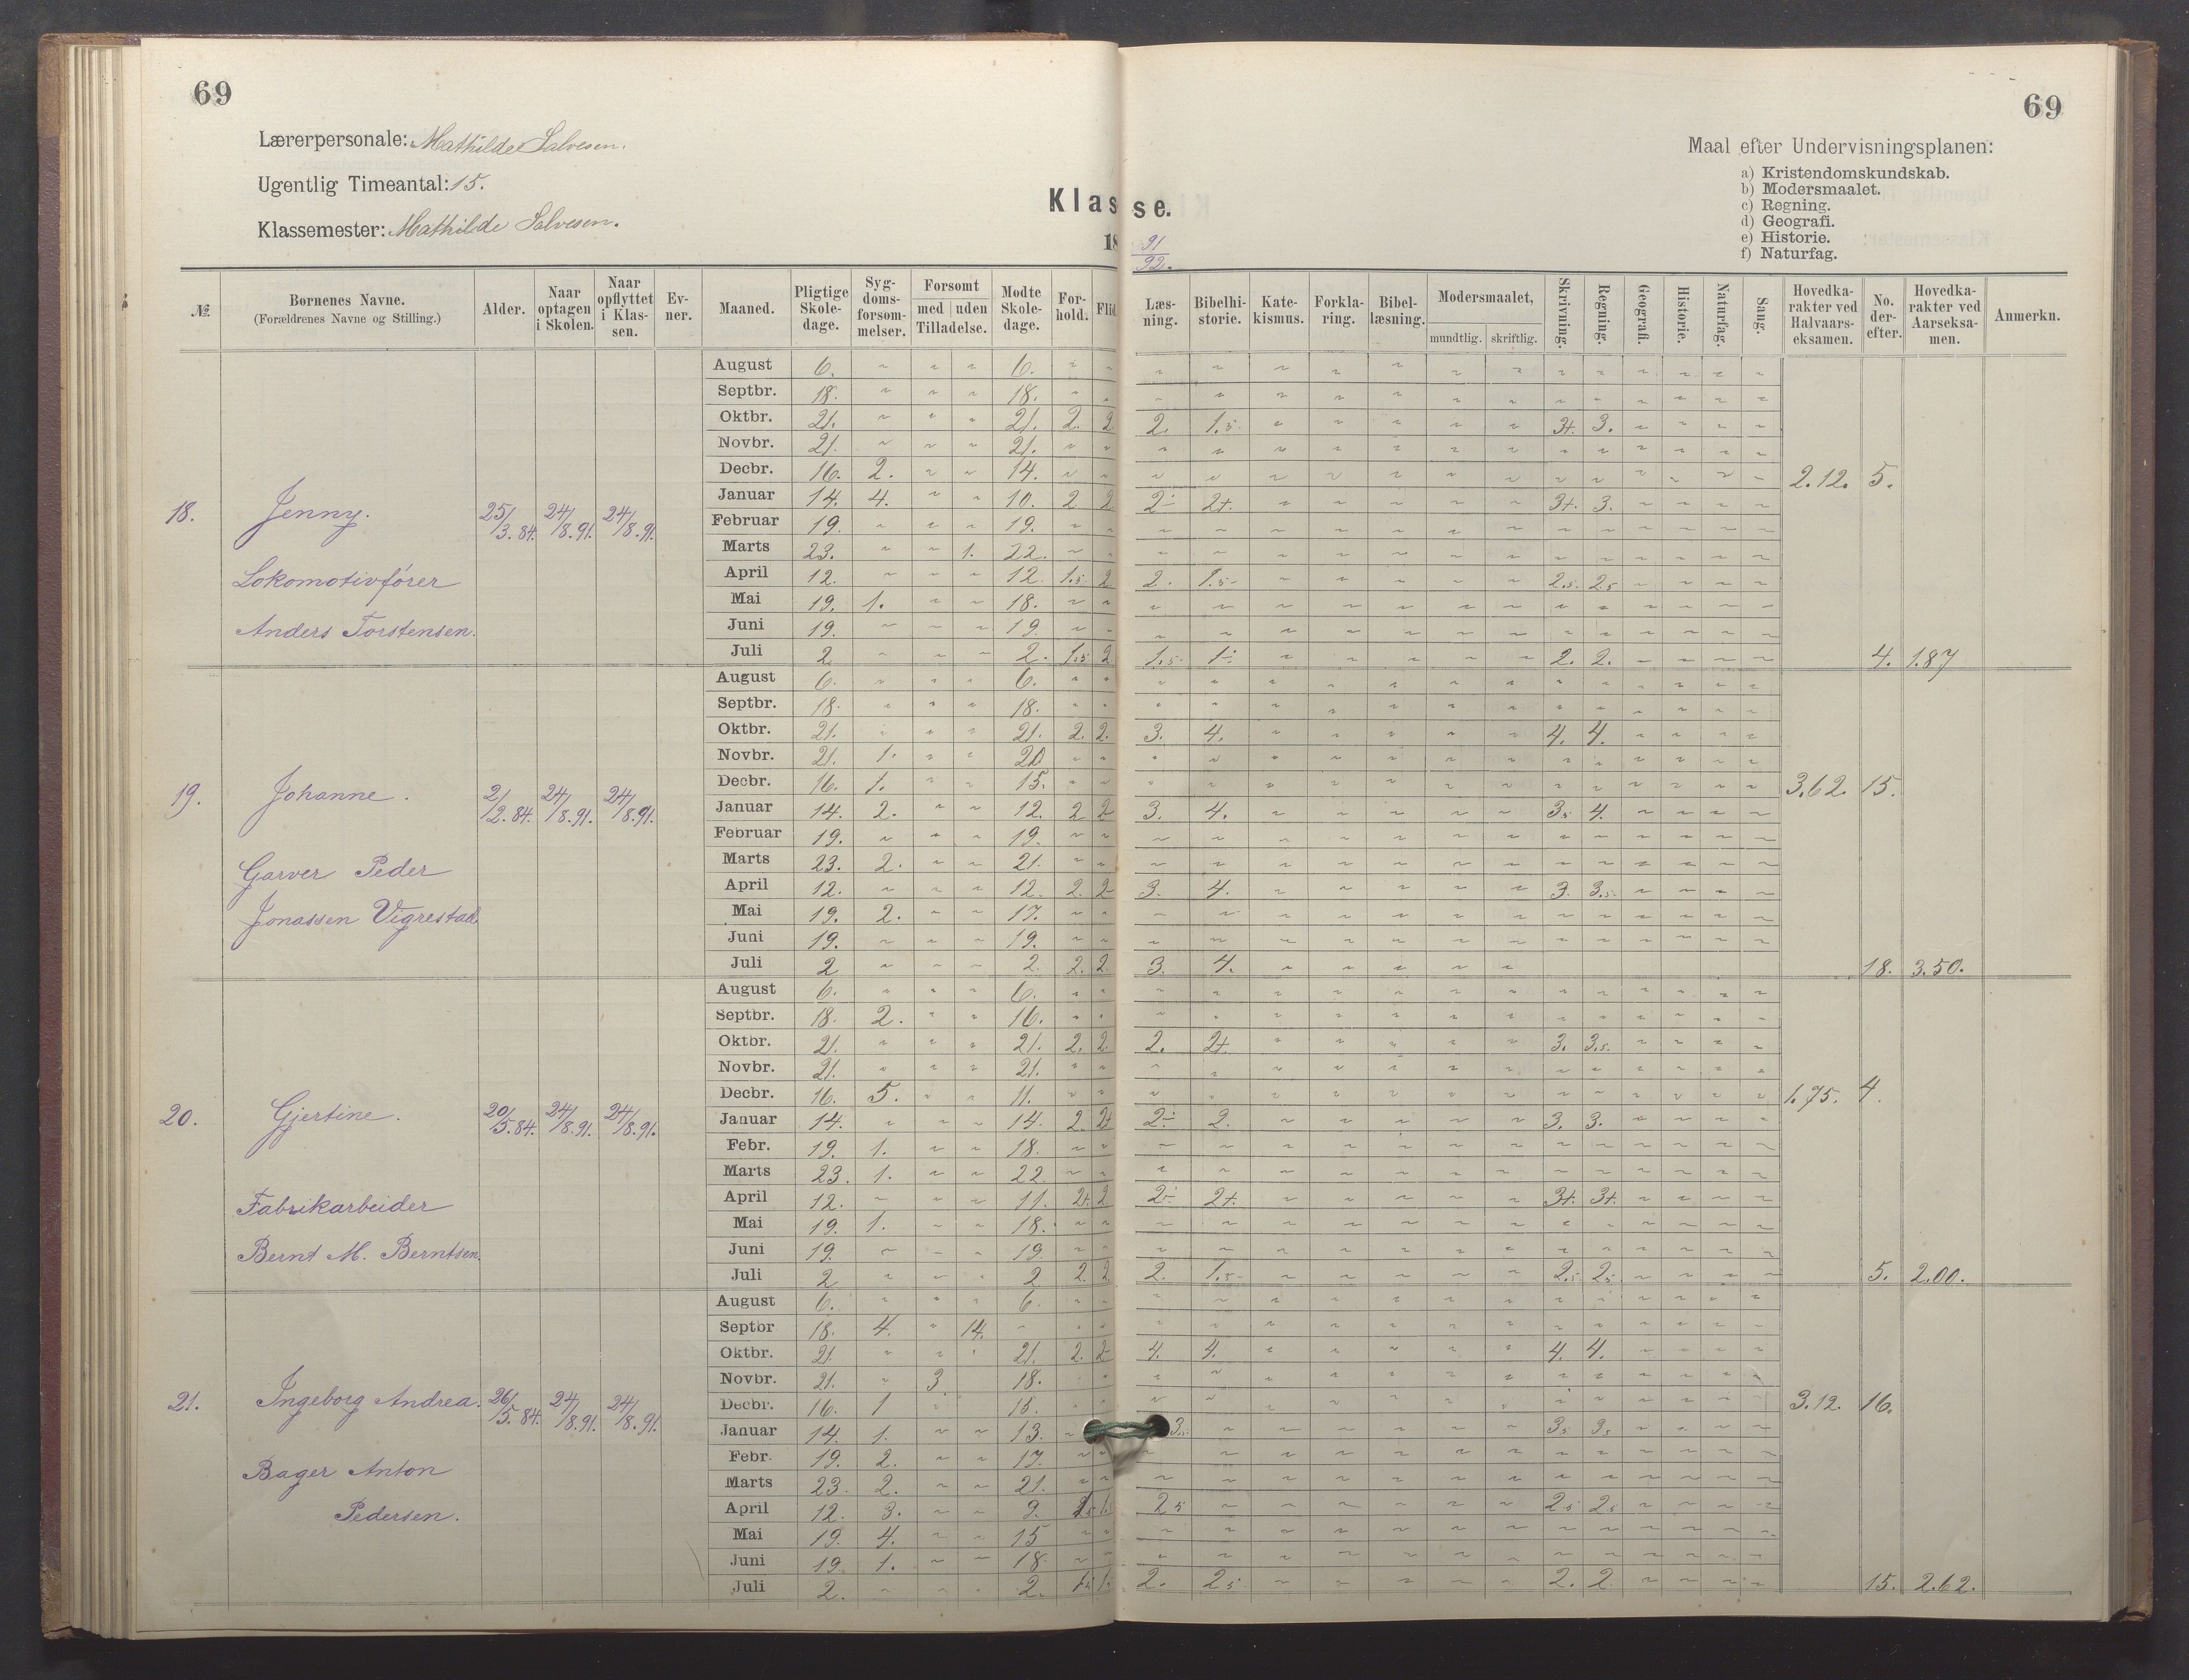 69
69
Lærerpersonale: Mathilde Salvesen.
Ugentlig Timeantal: 15.
Klassemester: Mathilde Salvesen.
Klasse.
18 91/92.
Maal efter Undervisningsplanen:
a) Kristendomskundskab.
b) Modersmaalet.
c) Regning.
d) Geografi.
e) Historie.
f) Naturfag.
№ | Børnenes Navne. (Forældrenes Navne og Stilling.) | Alder. | Naar optagen i Skolen. | Naar opflyttet i Klassen. | Evner. | Maaned. | Pligtige Skoledage. | Sygdomsforsømmelser. | Forsømt med | uden Tilladelse. | Mødte Skoledage. | Forhold. | Flid | Læsning. | Bibelhistorie. | Katekismus. | Forklaring. | Bibellæsning. | Modersmaalet, mundtlig. | skriftlig. | Skrivning. | Regning. | Geografi. | Historie. | Naturfag. | Sang. | Hovedkarakter ved Halvaarseksamen. | No. derefter. | Hovedkarakter ved Aarseksamen. | Anmerkn.
18. Jenny. 25/3.84. 24/8.91. 24/8.91.
Lokomotivfører
Anders Torstensen.
August 6. " " " 6. " "
Septbr. 18. " " " 18. " "
Oktbr. 21. " " " 21. 2. 2 2. 1.5 " " " " " 3+. 3. " " " "
Novbr. 21. " " " 21. " "
Decbr. 16. 2. " " 14. " " 2.12. 5.
Januar 14. 4. " " 10. 2 2 2÷ 2+. " " " " " 3+. 3. " " " "
Februar 19. " " " 19. " "
Marts 23. " " 1. 22. " "
April 12. " " " 12. 1.5 2 2. 1.5 " " " " " 2.5. 2.5 " " " "
Mai 19. 1. " " 18. " "
Juni 19. " " " 19. " "
Juli 2 " " " 2. 1.5 2 1.5 1÷ " " " " " 2. 2. " " " " 4. 1.87
19. Johanne. 2/2.84. 24/8.91. 24/8.91.
Garver Peder
Jonassen Vigrestad
August 6. " " " 6. " "
Septbr. 18. " " " 18. " "
Oktbr. 21. " " " 21. 2. 2. 3. 4. " " " " " 4. 4. " " " "
Novbr. 21. 1. " " 20 " "
Decbr. 16. 1. " " 15. " " 3.62. 15.
Januar 14. 2. " " 12. 2 2 3. 4. " " " " " 3.5 4. " " " "
Februar 19. " " " 19. " "
Marts 23. 2. " " 21. " "
April 12. " " " 12. 2. 2 3. 4. " " " " " 3. 3.5. " " " "
Mai 19. 2. " " 17. " "
Juni 19. " " " 19. " "
Juli 2 " " " 2. 2. 2. 3. 4. " " " " " 18. 3.50.
20. Gjertine. 20/5.84. 24/8.91. 24/8.91.
Fabrikarbeider
Bernt M. Berntsen.
August 6. " " " 6. " "
Septbr. 18. 2. " " 16. " "
Oktbr. 21. " " " 21. 2. 2 2. 2+ " " " " " 3. 3.5. " " " "
Novbr. 21. " " " 21. " "
Decbr. 16. 5. " " 11. " " 1.75. 4.
Januar 14. " " " 14. 2. 2+ 2÷ 2. " " " " " 3. 3. " " " "
Febr. 19. 1. " " 18. " "
Marts 23. 1. " " 22. " "
April 12. " " " 11. 2+ 2 2÷ 2+. " " " " " 3+. 3+. " " " "
Mai 19. 1. " " 18. " "
Juni 19. " " " 19. " "
Juli 2 " " " 2 2. 2 2. 1.5 " " " " " 2.5 2.5 " " " " 5. 2.00.
21. Ingeborg Andrea. 26/5.84. 24/8.91. 24/8.91.
Bager Anton
Pedersen.
August 6. " " " 6. " "
Septbr 18. 4. " 14. " " "
Oktbr. 21 " " " 21. 2. 2 4. 4. " " " " " 4. 4. " " " "
Novbr. 21. " 3 18. " "
Decbr. 16. 1 " 15. " " 3.12. 16.
Januar 14. 1. " " 13. " 3. " " " " " " 3.5 3.5 " " " "
Febr. 19. 2. " " 17. " "
Marts 23. 2. " " 21. " "
April 12. 3. " " 9. 2.5 " " " " " " 2.5 2.5 " " " "
Mai 19. 4. " " 15 " "
Juni 19. 1. " " 18. " "
Juli 2. " " " 2. 1.5 1. 2. 2.5 " " " " " 2. 2. " " " " 15. 2.62.